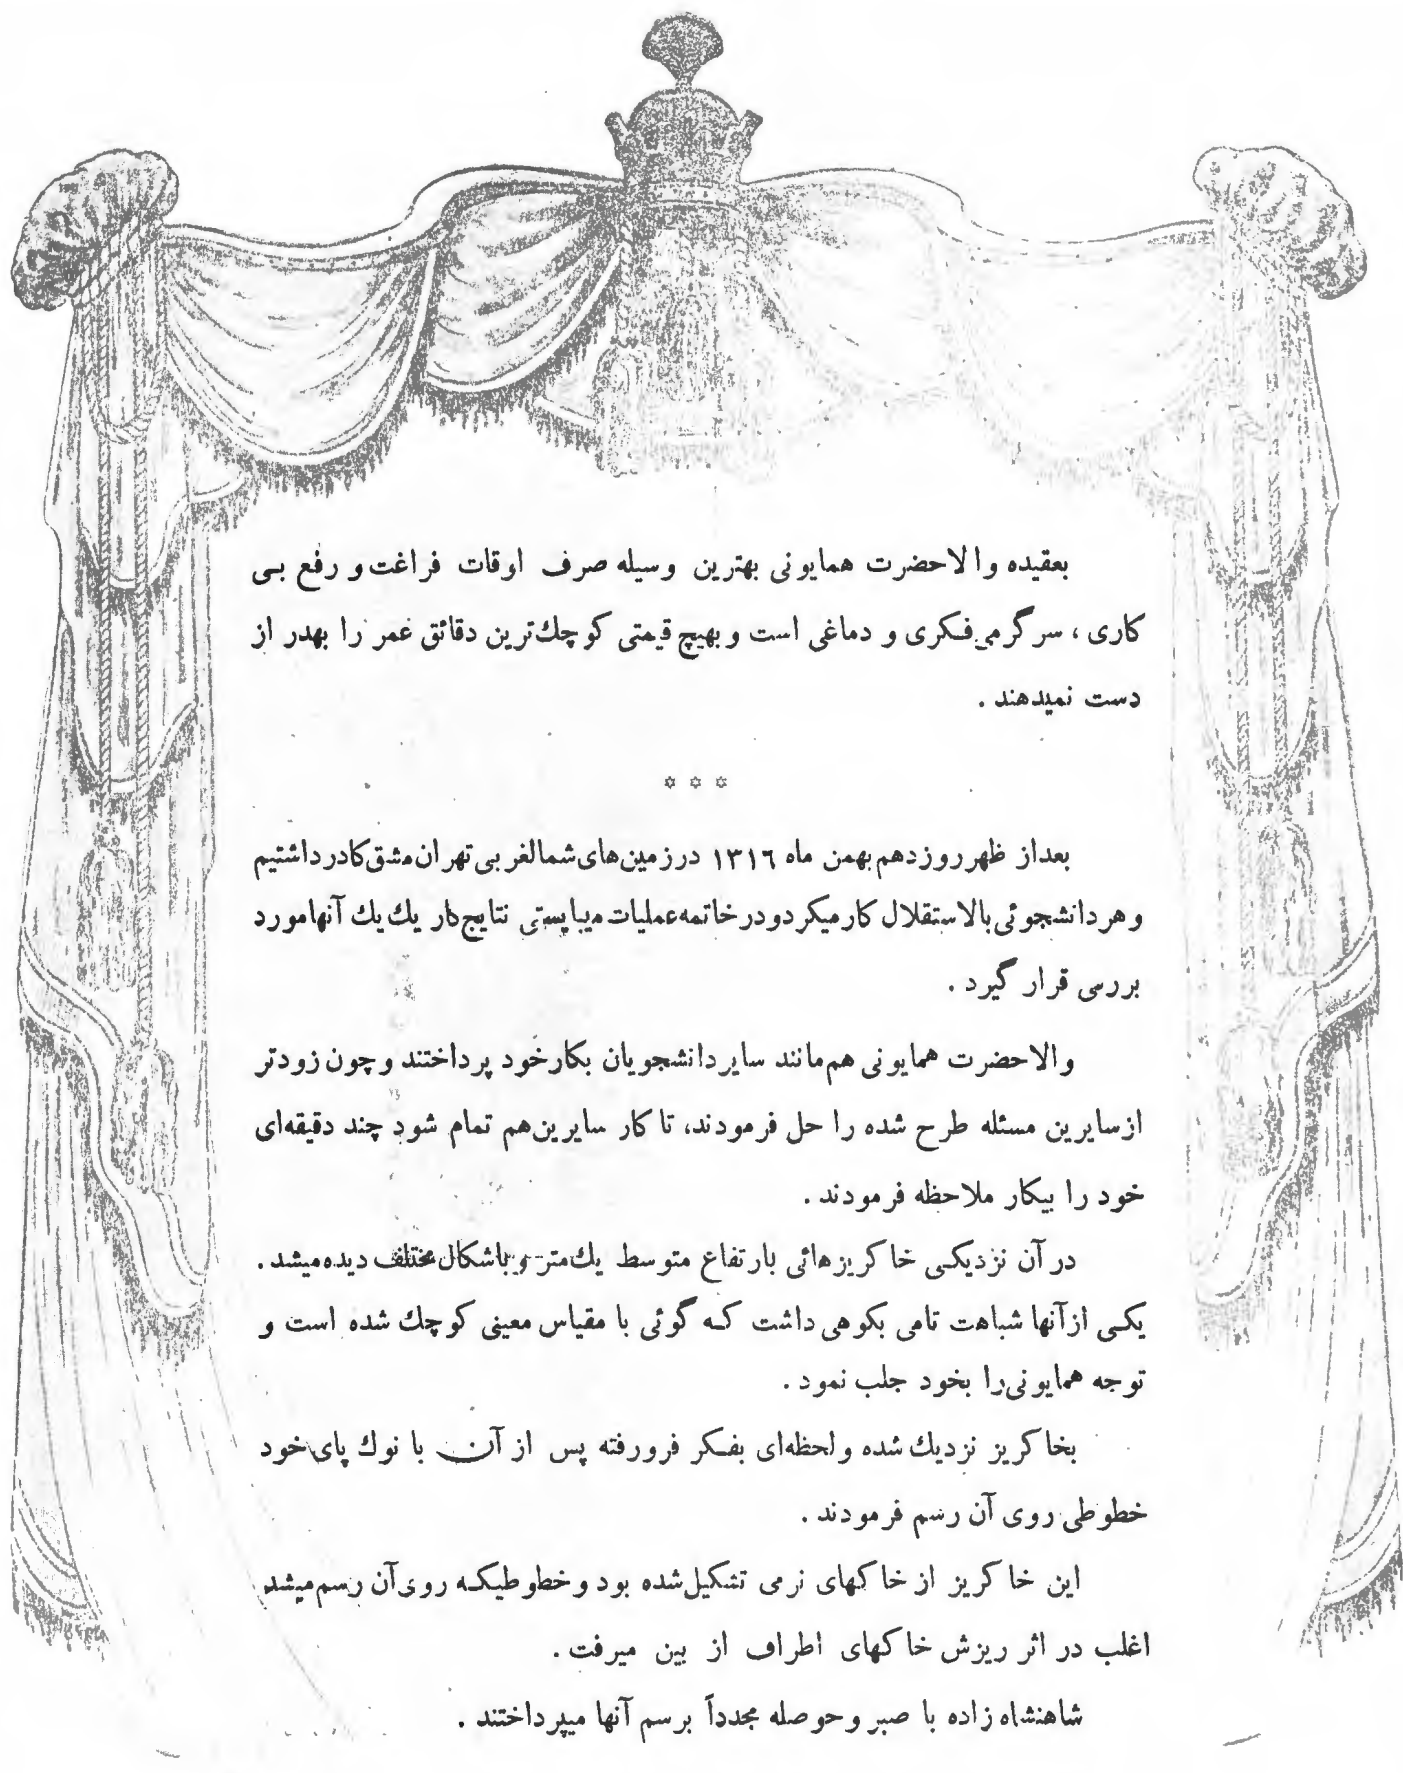 بعقیده والاحضرت همایونی بهترین وسیله صرف اوقات فراغت و رفع بی
کاری ، سرگرمی فکری و دماغی است و بهیچ قیمتی کوچك‌ترین دقائق عمر را بهدر از
دست نمیدهند .
✡ ✡ ✡
بعداز ظهر روز دهم بهمن ماه ۱۳۱۶ در زمین‌های شمالغربی تهران مشق کادر داشتیم
و هر دانشجوئی بالاستقلال کار میکرد و در خاتمه عملیات میبایستی نتایج کار یك یك آنها مورد
بررسی قرار گیرد .
والاحضرت همایونی هم مانند سایر دانشجویان بکار خود پرداختند و چون زودتر
از سایرین مسئله طرح شده را حل فرمودند، تا کار سایرین هم تمام شود چند دقیقه‌ای
خود را بیکار ملاحظه فرمودند .
در آن نزدیکی خاکریزهائی بارتفاع متوسط یك متر و باشکال مختلف دیده میشد .
یکی از آنها شباهت تامی بکوهی داشت که گوئی با مقیاس معینی کوچك شده است و
توجه همایونی را بخود جلب نمود .
بخاکریز نزدیك شده و لحظه‌ای بفکر فرو رفته پس از آن با نوك پای خود
خطوطی روی آن رسم فرمودند .
این خاکریز از خاکهای نرمی تشکیل شده بود و خطوطیکه روی آن رسم میشد
اغلب در اثر ریزش خاکهای اطراف از بین میرفت .
شاهنشاه زاده با صبر و حوصله مجدداً برسم آنها میپرداختند .